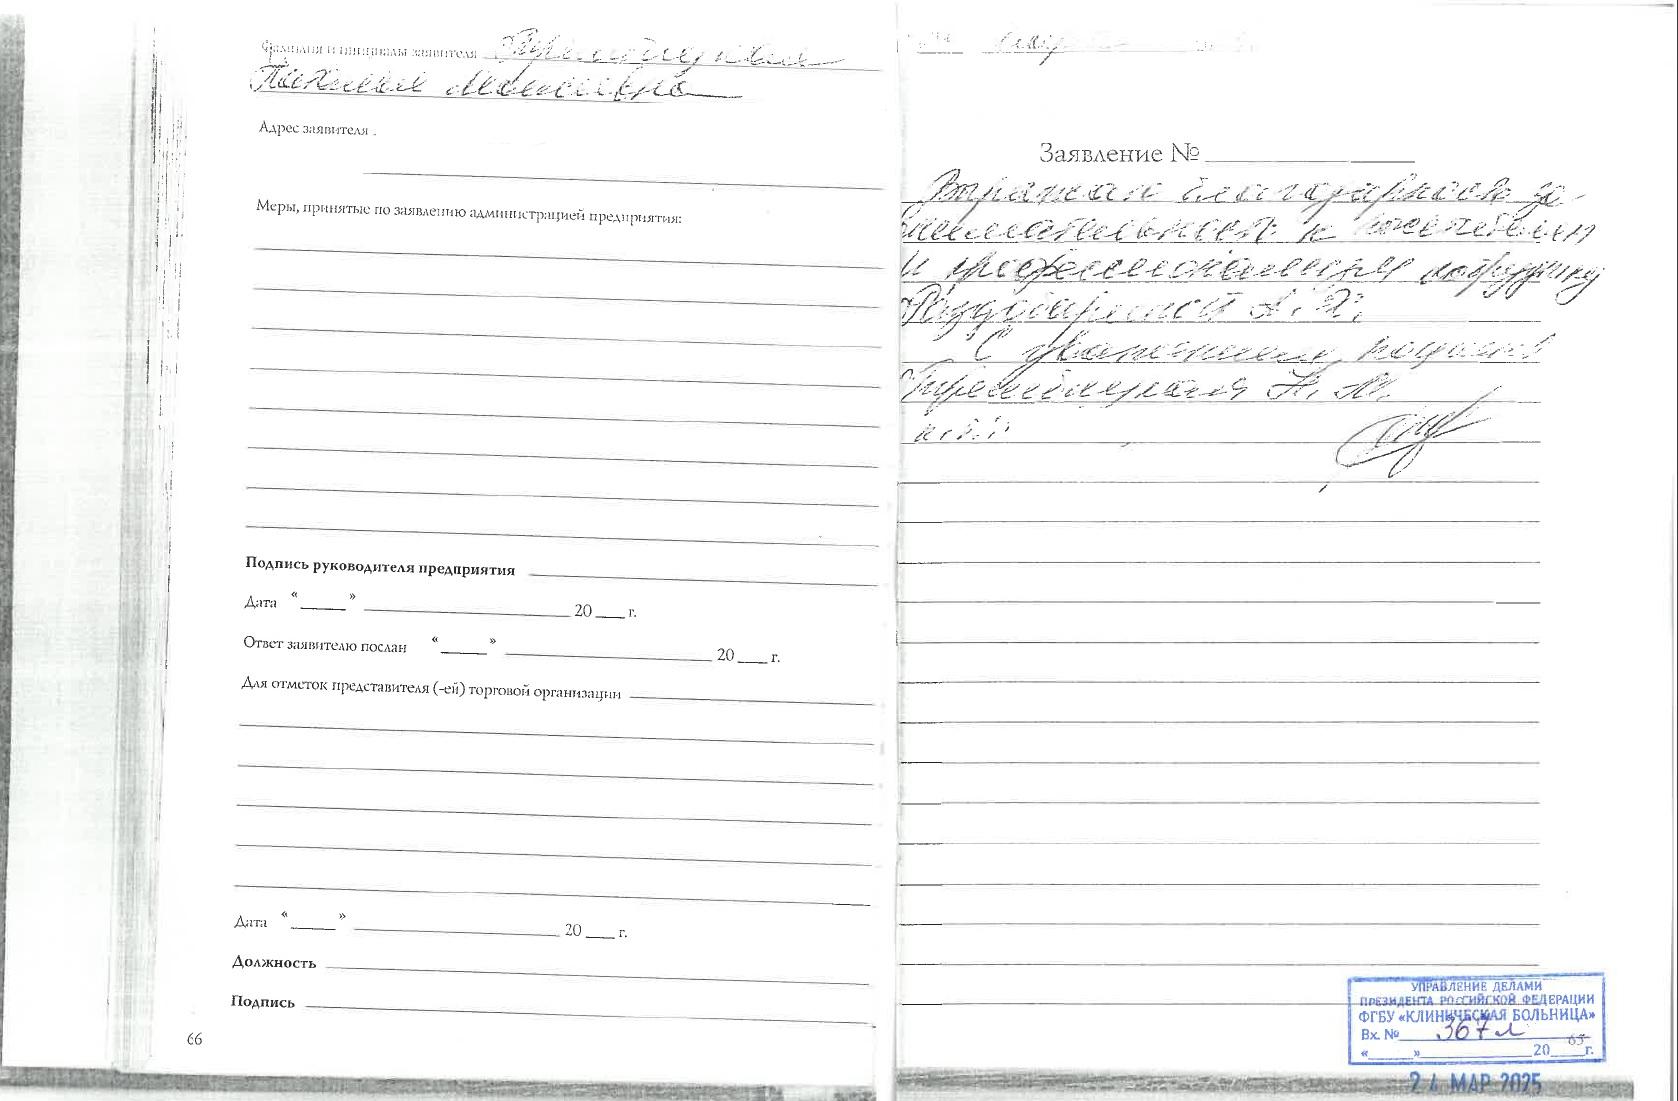 Фамилия и инициалы заявителя
Адрес заявителя
Меры, принятые по заявлению администрацией предприятия:
Подпись руководителя предприятия
Дата "____" ____ 20 ___ г.
Ответ заявителю послан "____" ____ 20 ___ г.
Для отметок представителя (-ей) торговой организации
Дата "____" ____ 20 ___ г.
Должность
Подпись
66
Заявление №
Выражаю благодарность за
внимательность к посетителям
и профессионализм сотруднику
А. Я.
С уважением,
УПРАВЛЕНИЕ ДЕЛАМИ
ПРЕЗИДЕНТА РОССИЙСКОЙ ФЕДЕРАЦИИ
ФГБУ «КЛИНИЧЕСКАЯ БОЛЬНИЦА»
Вх. № 367л
«____»____ 20 __ г.
24 МАР 2025